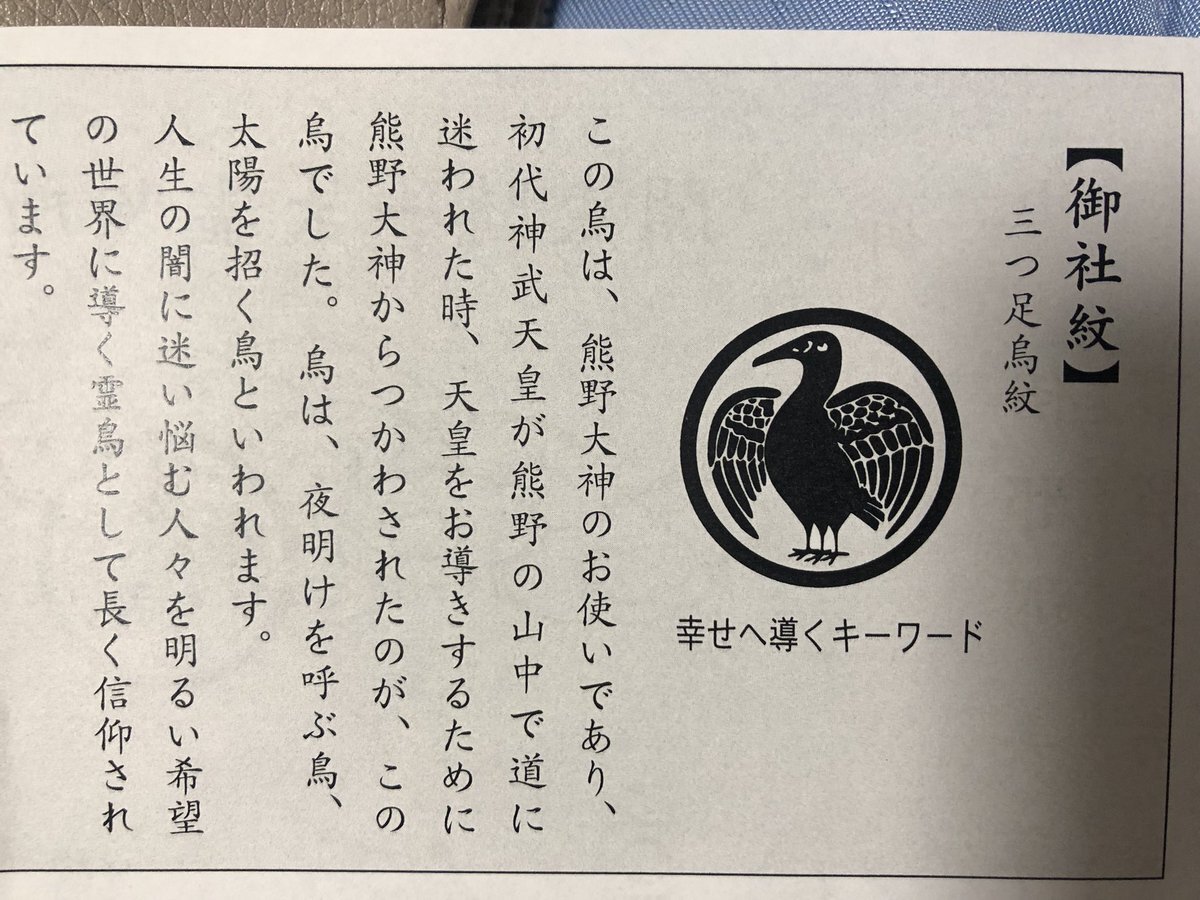 【御社紋】
三つ足烏紋
幸せへ導くキーワード
この烏は、熊野大神のお使いであり、
初代神武天皇が熊野の山中で道に
迷われた時、天皇をお導きするために
熊野大神からつかわされたのが、この
烏でした。烏は、夜明けを呼ぶ鳥、
太陽を招く鳥といわれます。
人生の闇に迷い悩む人々を明るい希望
の世界に導く霊鳥として長く信仰され
ています。